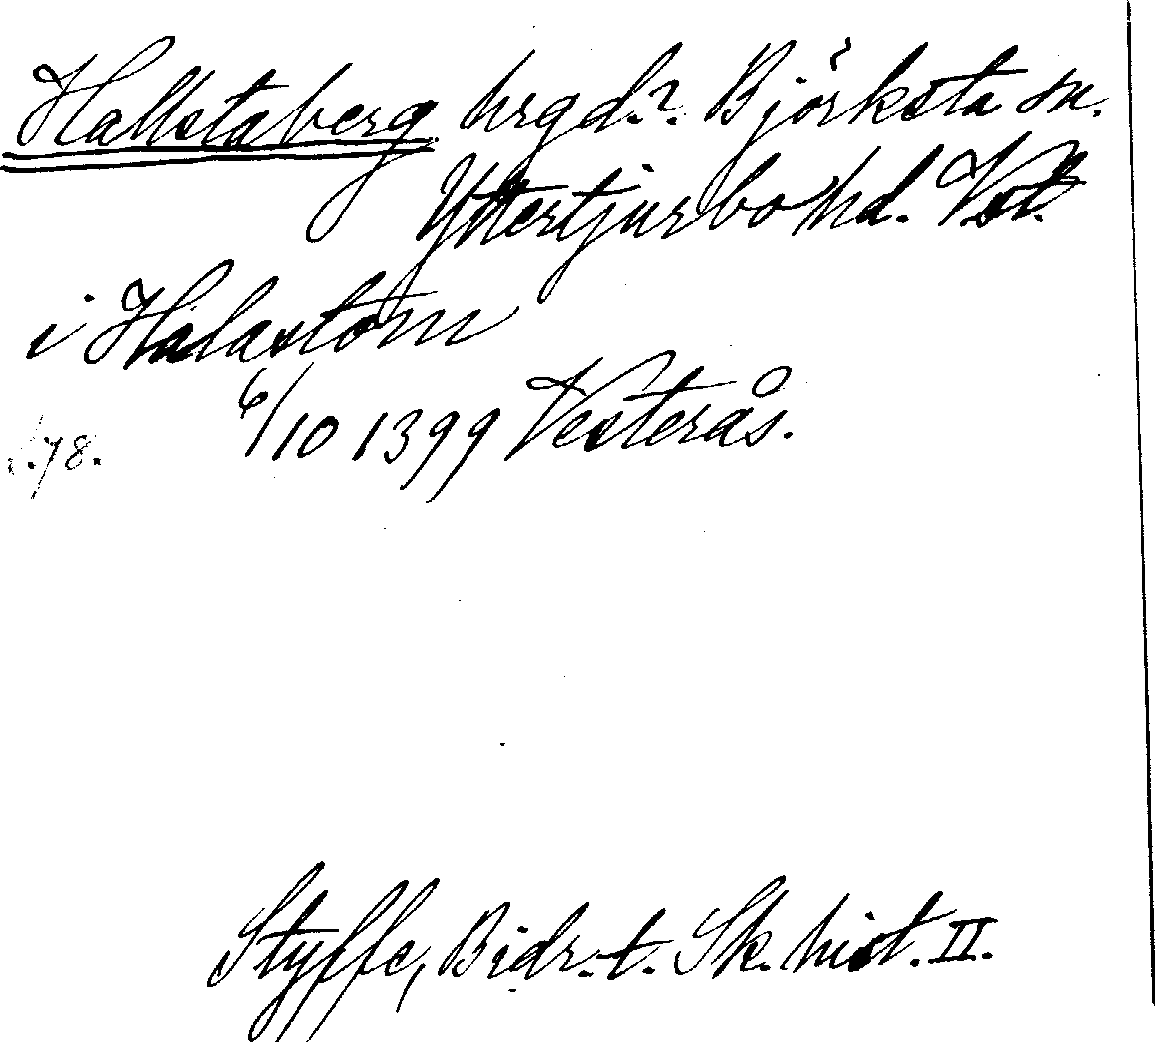 Hallstaberg hrgd.? Björksta sn.
Yttertjurbo hd. Vst.
i Halastom
6/10 1399 Vesterås.
s. 78.
Styffe, Bidr. t. Sk. hist. II.